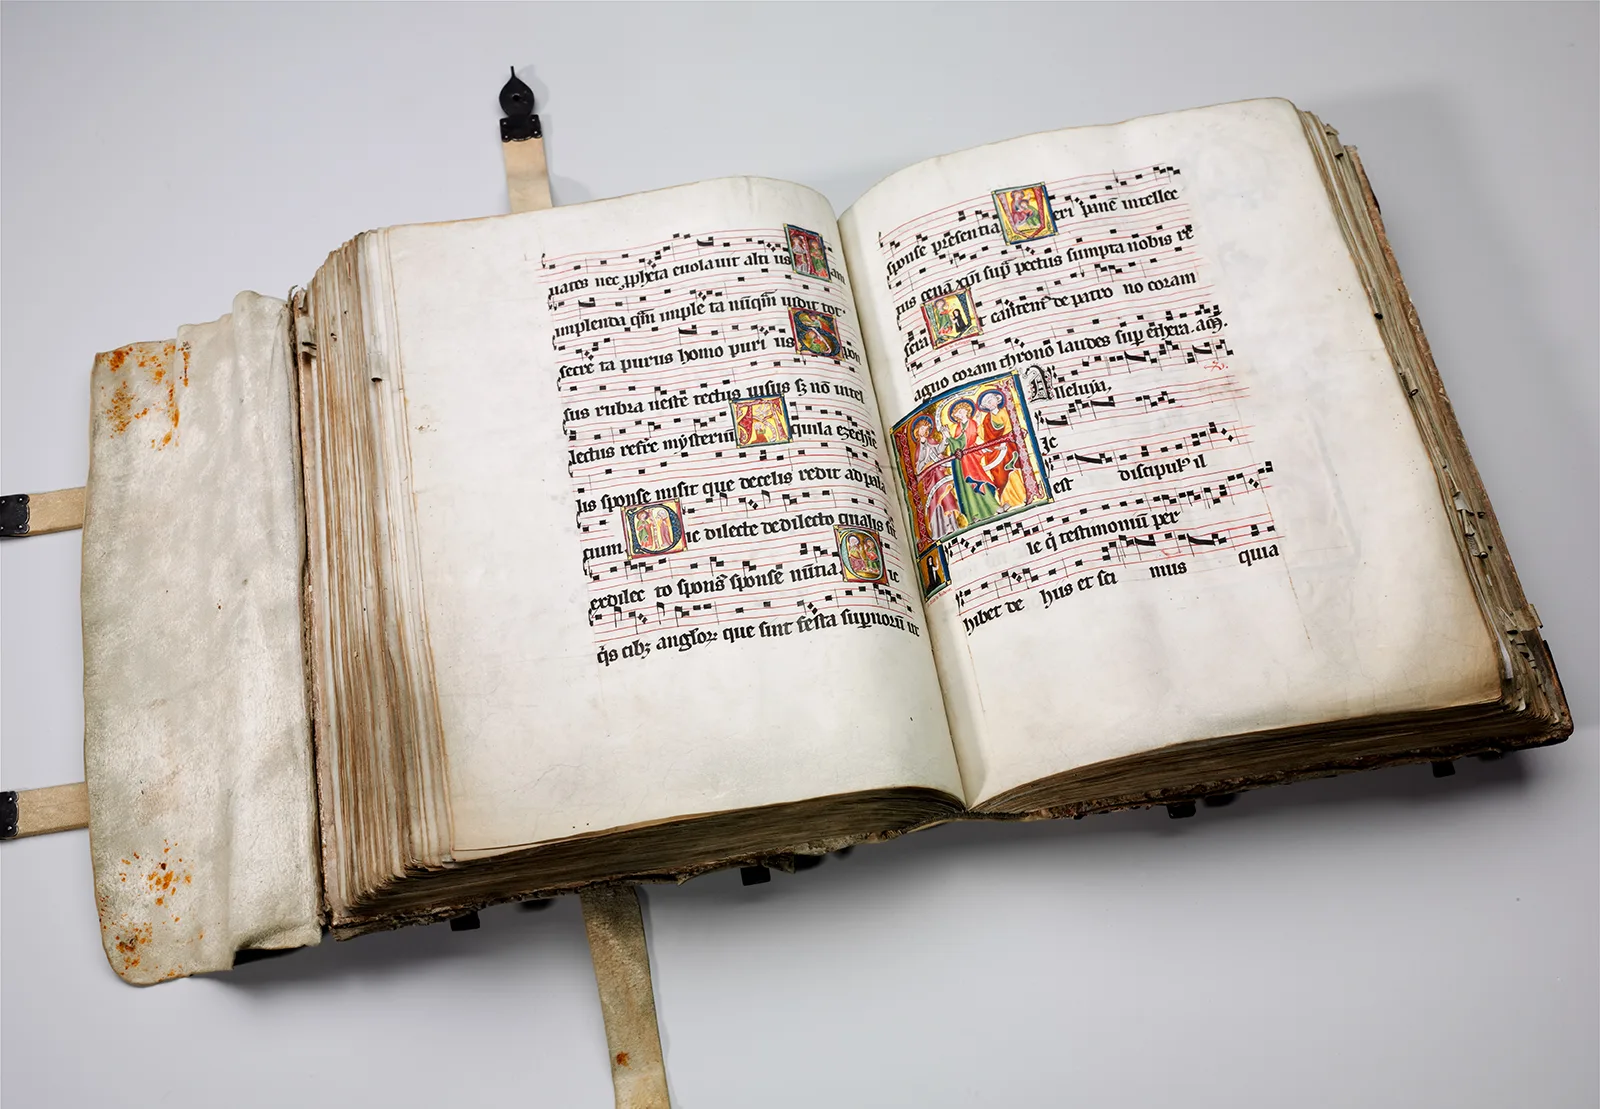 uates nec ꝓpheta euolauit alti us am
implenda qm̄ imple ta nūqm̄ uidit tot
secre ta purus homo puri us pon
sus rubra ueste tectus uisus sʒ nō intel
lectus respre mȳsteriū quila ezechie
lis sponse misit que decelis redit ad pala
cium D ic dilecte de dilecto qualis sit
ex dilec to spons sponse nūtia D ic
q̄s cibʒ angloꝝ que sint festa supnoꝝ ut
sponse presentia V eri pane intellec
tus cena xpi sup pectus sumpta nobis re
sera t cantem de patro no coram
agno coram throno laudes sup ethera. am̄.
Alleluia,
Ic
est discipulꝰ il
le q̄ testimoniū per
hibet de hus et sci mus quia